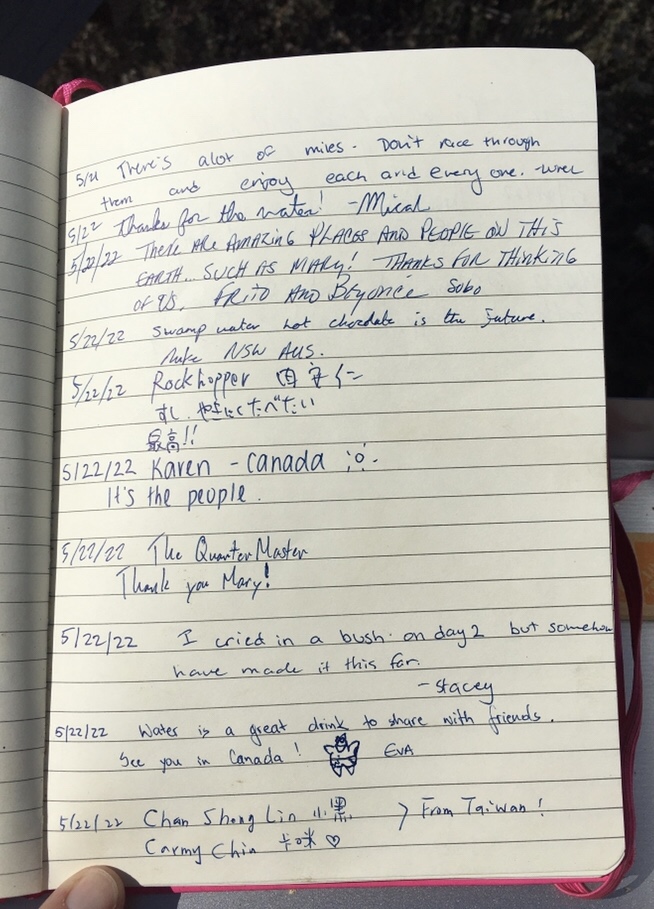 5/21 There's alot of miles - Don't race through
them and enjoy each and every one. -Wrex
5/22 Thanks for the water! - Mical
5/22/22 THERE ARE AMAZING PLACES AND PEOPLE ON THIS
EARTH... SUCH AS MARY! THANKS FOR THINKING
OF US, FRITO AND BEYONCÉ SOBO
5/22/22 Swamp water hot chocolate is the future.
NSW AUS.
5/22/22 Rockhopper
すし たべたい
最高!!
5/22/22 Karen - Canada
It's the people.
5/22/22 The QuarterMaster
Thank you Mary!
5/22/22 I cried in a bush on day 2 but somehow
have made it this far.
- Stacey
5/22/22 Water is a great drink to share with friends.
See you in Canada! EVA
5/22/22 Chan Sheng Lin 小黑 > From Taiwan!
Carmy Chin 卡咪 ♡